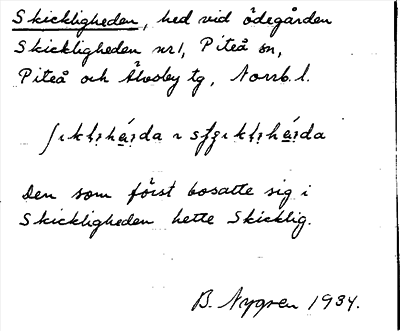 Skickligheden, hed vid ödegården
Skickligheden nr1, Piteå sn,
Piteå och Älvsby tg, Norrb. l.
Den som först bosatte sig i
Skickligheden hette Skicklig.
B. Nygren 1934.